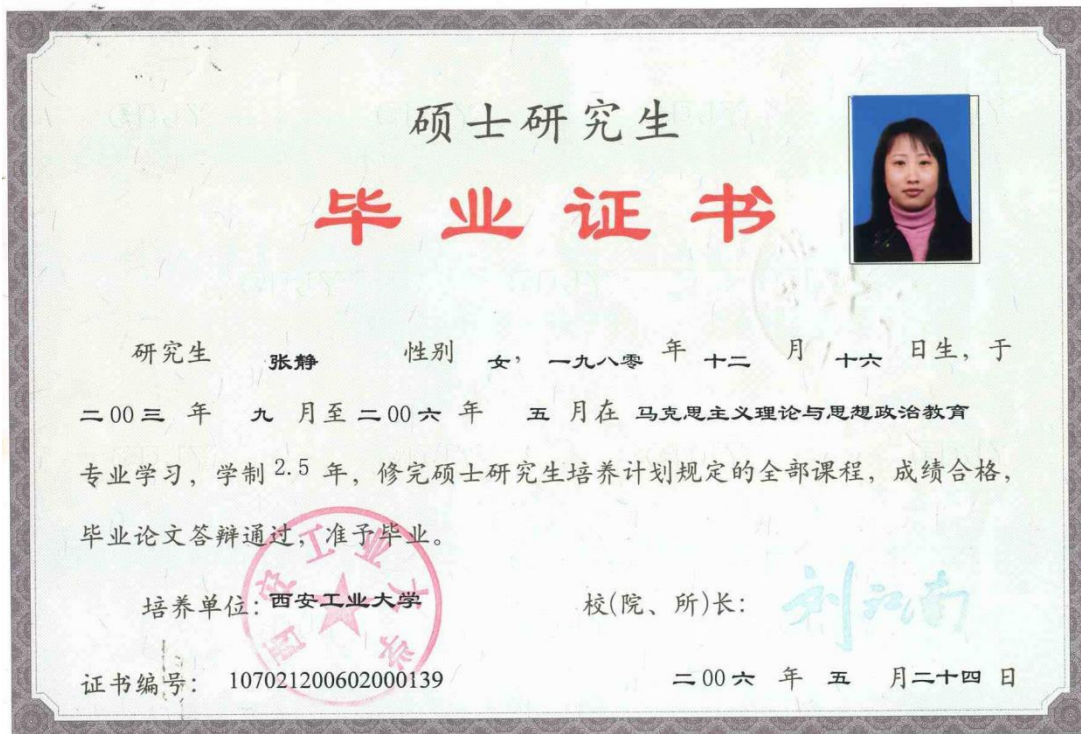 硕士研究生
毕业证书
研究生 张静 性别 女, 一九八零 年 十二 月 十六 日生, 于
二00三 年 九 月至 二00六 年 五 月在 马克思主义理论与思想政治教育
专业学习, 学制 2.5 年, 修完硕士研究生培养计划规定的全部课程, 成绩合格,
毕业论文答辩通过, 准予毕业。
西安工业大学
培养单位: 西安工业大学 校(院、所)长: 刘江南
证书编号: 107021200602000139 二00六 年 五 月二十四 日